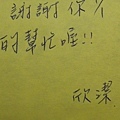 謝謝你
的幫忙喔!!
欣潔